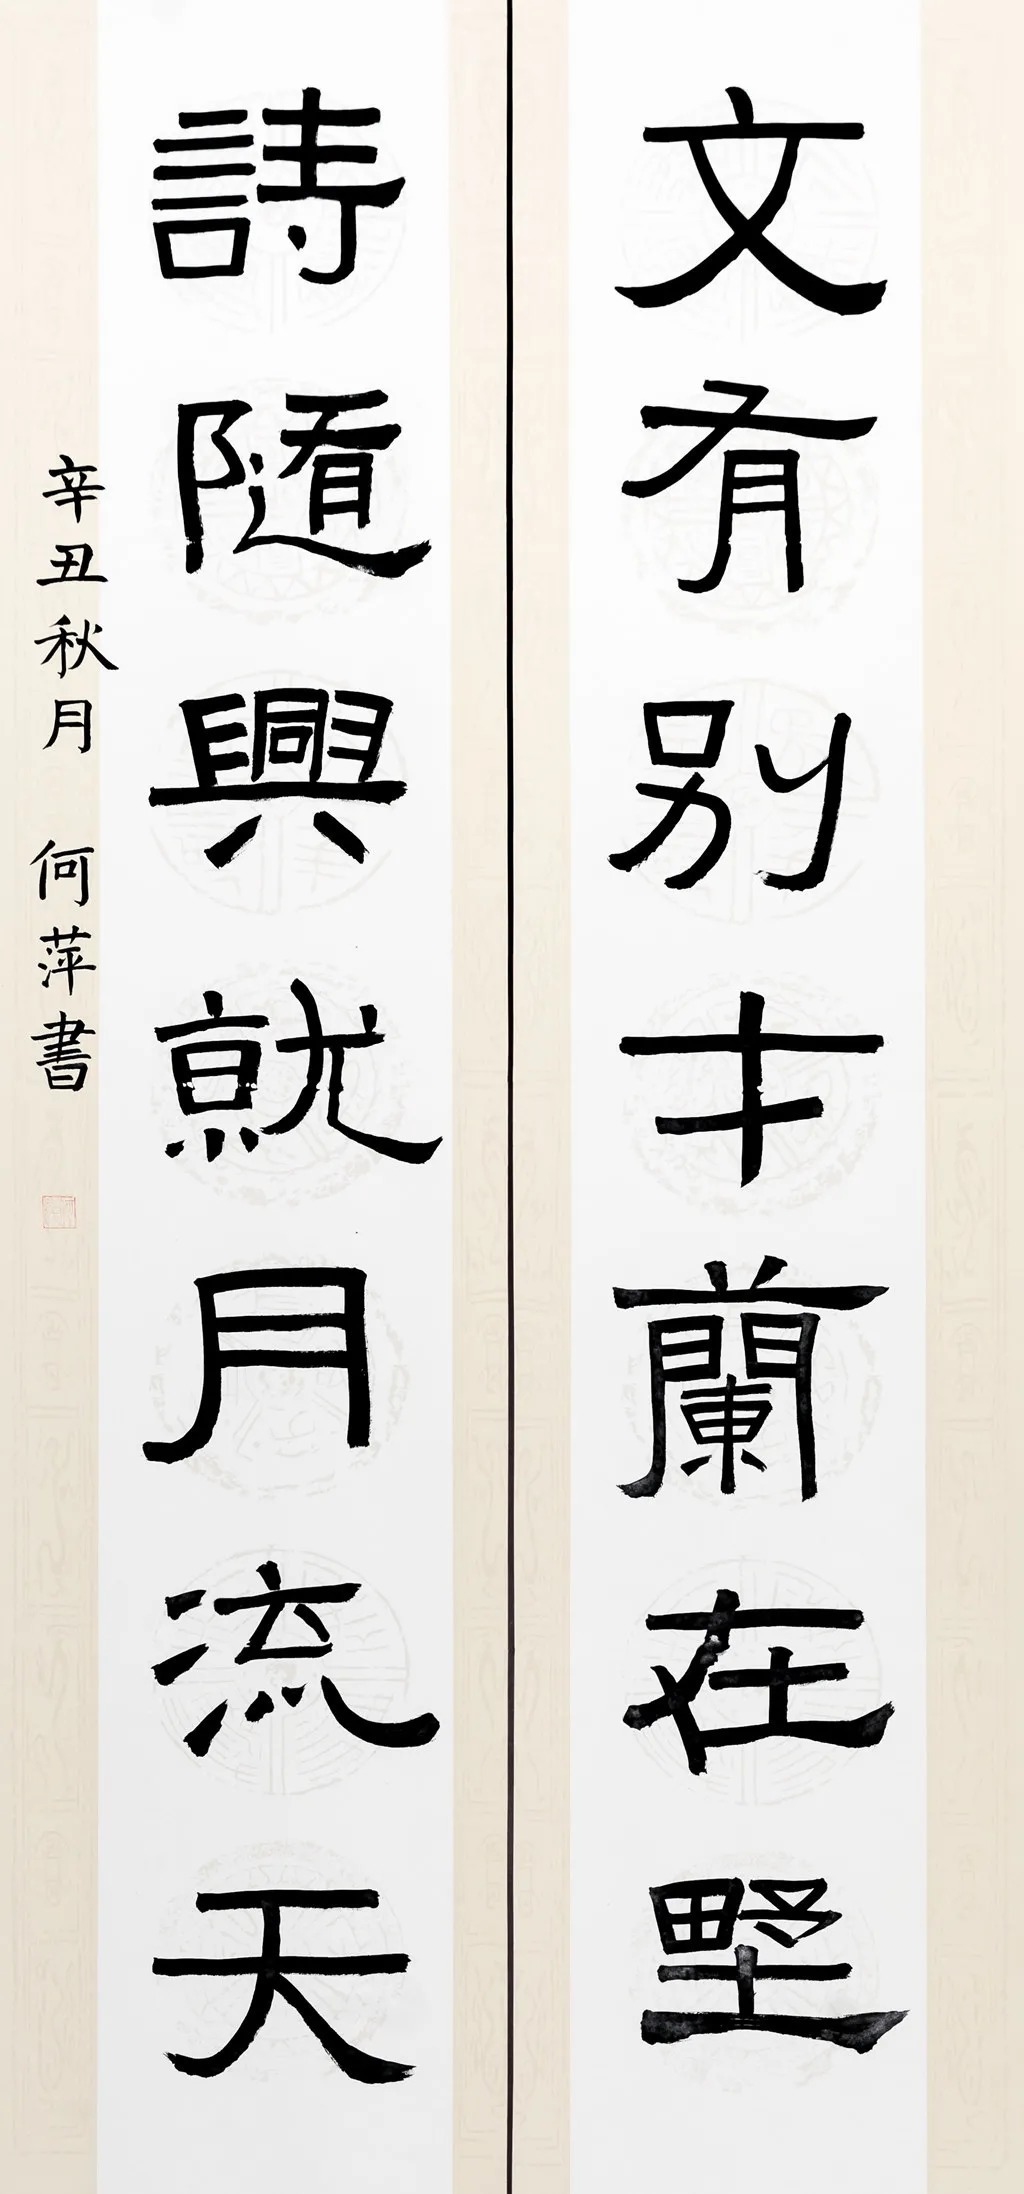 文有别才蘭在野
詩隨興就月流天
辛丑秋月 何萍書